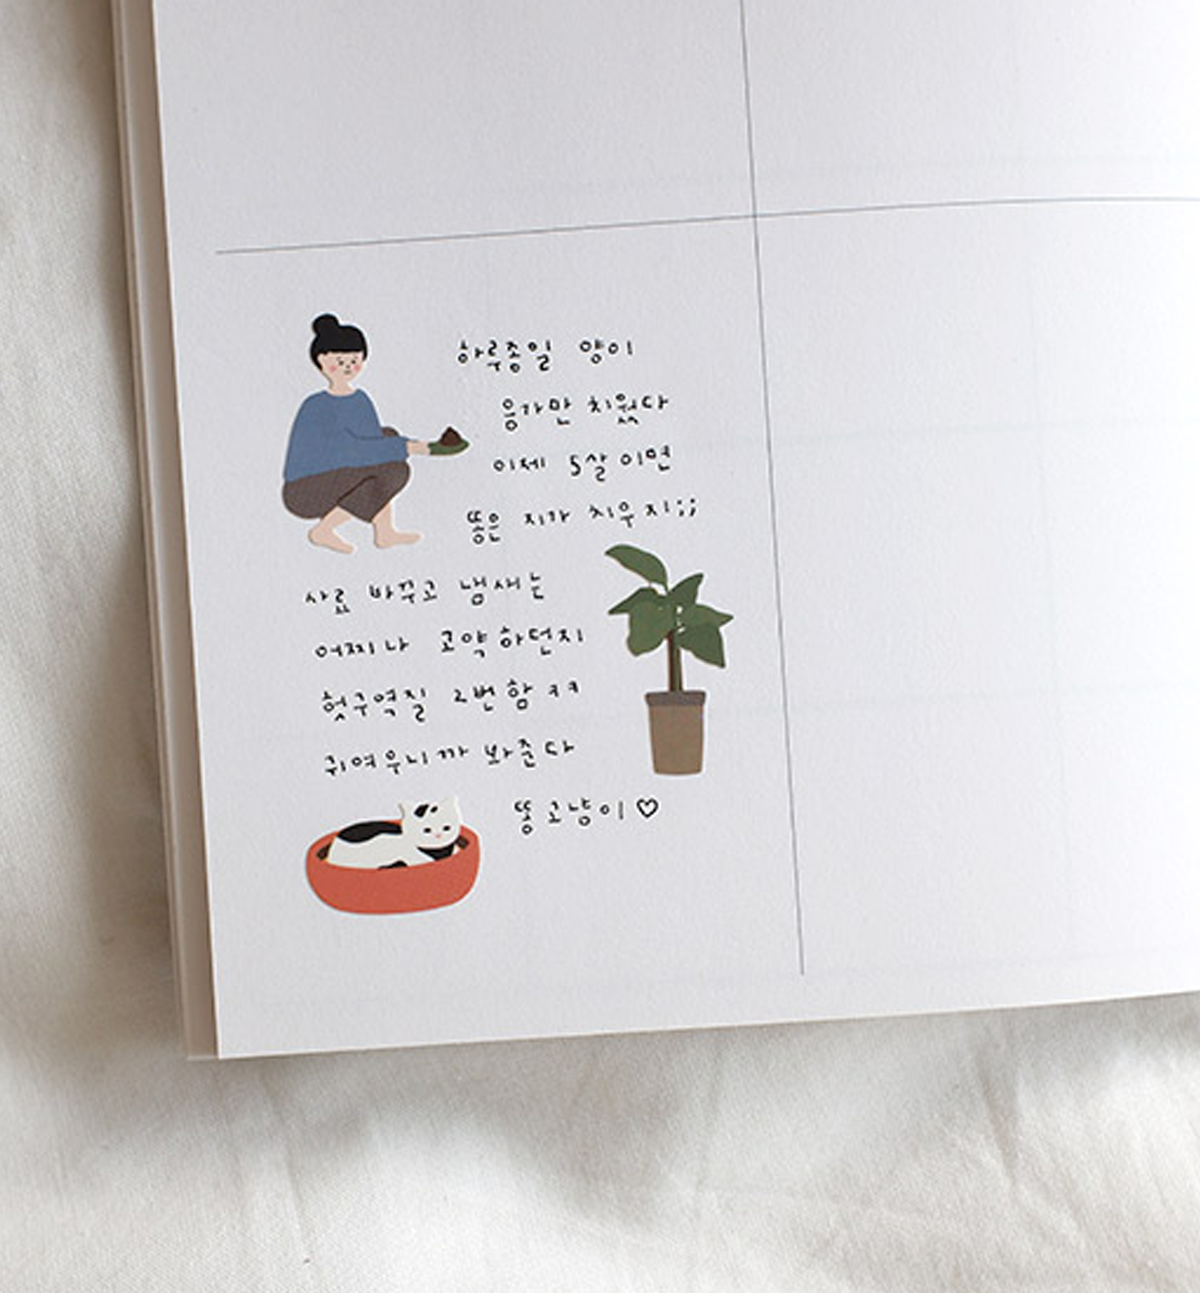 하루종일 양이
응가만 치웠다
이제 5살이면
똥은 지가 치우지;;
사료 바꾸고 냄새는
어찌나 고약하던지
헛구역질 2번함 ㅋㅋ
귀여우니까 봐준다
똥고냥이♡